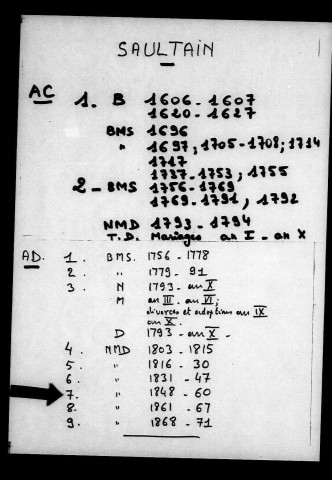 SAULTAIN
AC 1. B 1606-1607
1620-1627
BMS 1696
" 1697, 1705-1708; 1714
1717
1737-1753, 1755
2- BMS 1756-1769
1769-1791, 1792
NMD 1793-1794
T.D. Mariages an I - an X
AD. 1. BMS. 1756-1778
2. " 1779-91
3. N 1793-an X
M an III - an VI;
divorces et adoptions an IX
an X.
D 1793-an X-
4. NMD 1803-1815
5. " 1816-30
6. " 1831-47
7. " 1848-60
8. " 1861-67
9. " 1868-71